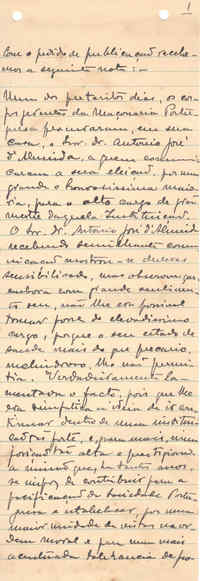 1
Com o pedido de publicação recebe-
mos a seguinte nota: –
Um dos preteritos dias, os cor-
pos gerentes da Maçonaria Portu-
guesa procuraram, em sua
casa, o Snr. dr. Antonio José
d'Almeida, a quem communi-
caram a sua eleição, por uma
grande e honrosissima maio-
ria, para o alto cargo de grão
mestre daquela Instituição.
O Snr. dr. Antonio José d'Almeida
recebendo semelhante comu-
nicação mostrou-se deveras
sensibilisado, mas observou que,
embora com grande sentimen-
to seu, não lhe era possivel
tomar posse do elevadissimo
cargo, porque o seu estado de
saude mais do que precario,
melindroso, lh'o não permi-
tia. Verdadeiramente la-
mentava o facto, pois que lhe
era simpatica a ideia de
dentro de uma institui-
ção tão forte, e, para mais, numa
posição tão alta e prestigiosa
a missão que, ha tantos anos,
se impoz de contribuir para a
pacificação da Sociedade Portu-
guesa e estabelecer, por uma
maior unidade de vistas na or-
dem moral e por uma mais
acentuada tolerancia de